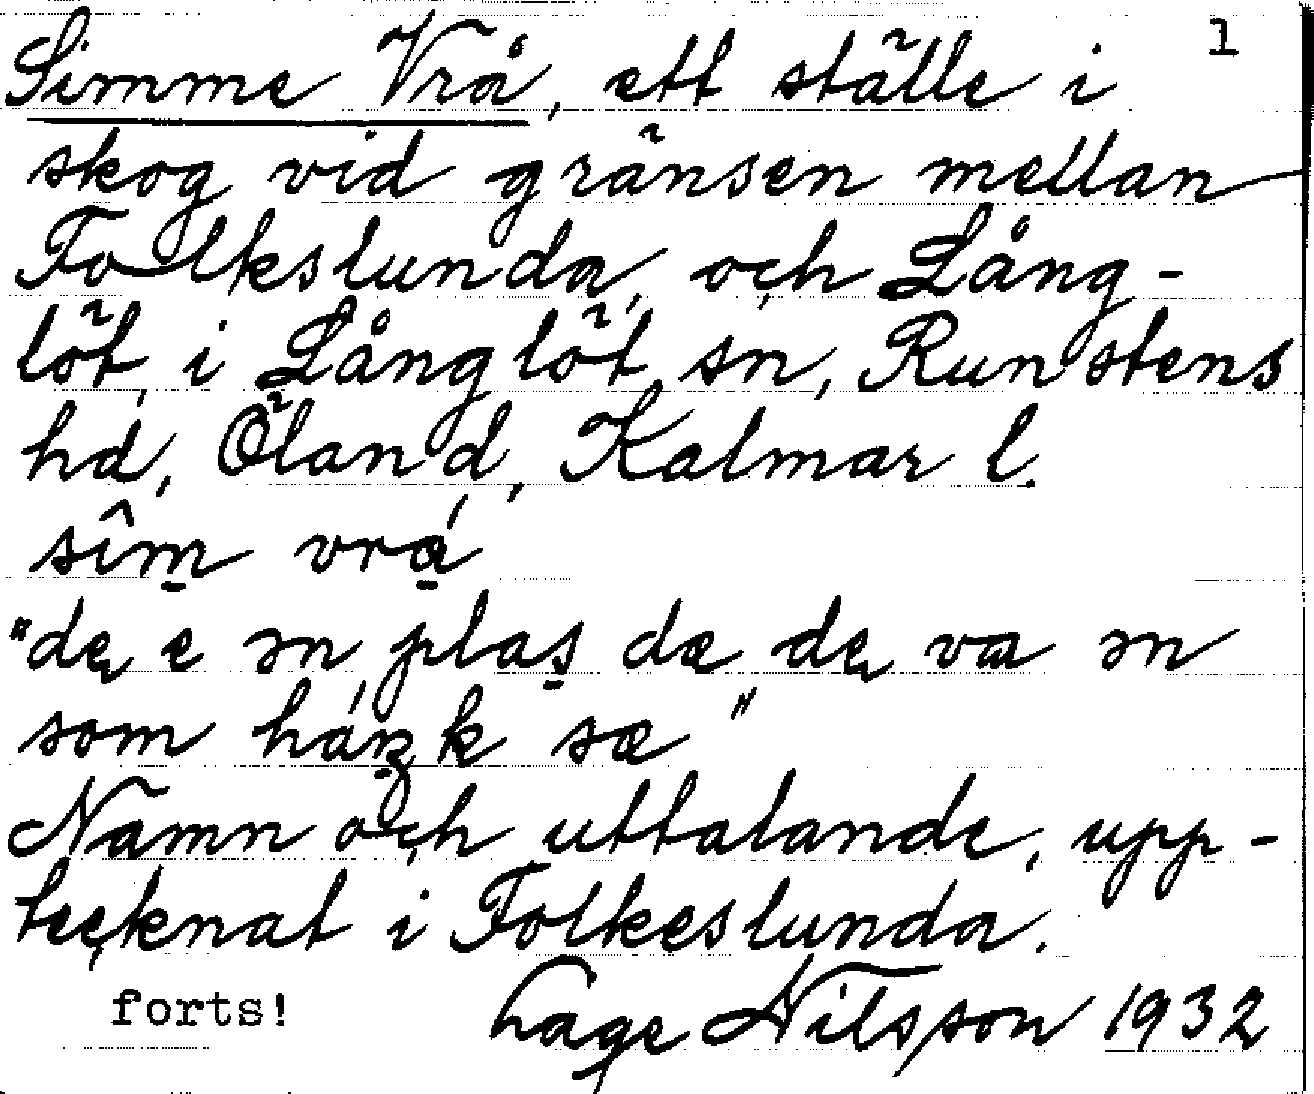 Simme Vrå, ett ställe i 1
skog vid gränsen mellan
Folkslunda och Lång-
löt, i Långlöt sn, Runstens
hd, Öland, Kalmar l.
sîm vrá
"de e ən plas dæ de va ən
som sæ"
Namn och uttalande, upp-
tecknat i Folkeslunda.
forts! Lage Nilsson 1932